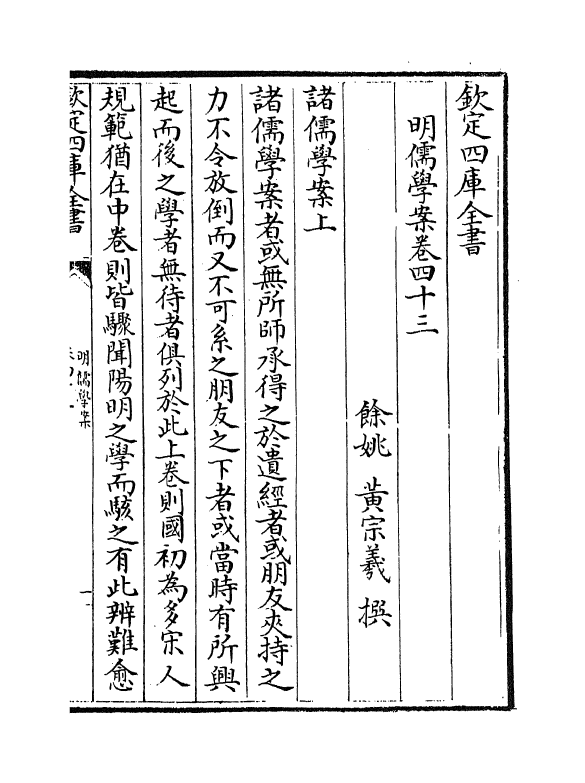 欽定四庫全書
明儒學案卷四十三
餘姚 黃宗羲 撰
諸儒學案上
諸儒學案者或無所師承得之於遺經者或朋友夾持之
力不令放倒而又不可系之朋友之下者或當時有所興
起而後之學者無待者俱列於此上卷則國初為多宋人
規範猶在中卷則皆驟聞陽明之學而駭之有此辨難愈
欽定四庫全書
明儒學案
一